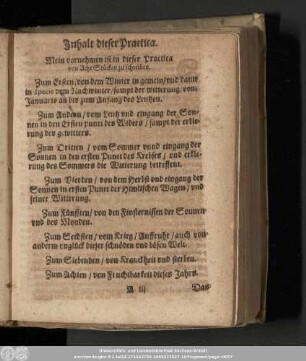 Inhalt dieser Practica.
Mein vornehmen ist in dieser Practica
von Acht Stücken zu schreiben.
Zum Ersten/von dem Winter in gemein/vnd dann
in specie vom Nachwinter/sampt der witterung, vom
Januario an bis zum Anfang des Lentzen.
Zum Andern/ vom Lentz vnd eingang der Son-
nen in den Ersten punct des Widers/ sampt der erkle-
rung des gewitters.
Zum Dritten / vom Sommer vnnd eingang der
Sonnen in den ersten Punct des Krebsen / vnd erkle-
rung des Sommers die Witterung betreffent.
Zum Vierden/ von dem Herbst vnd eingang der
Sonnen in ersten Punct der Himlischen Wagen/ vnd
seiner Witterung.
Zum Fünfften/ von den Finsternissen der Sonnen
vnd des Monden.
Zum Sechsten/vom Krieg/ Auffruhr/ auch von
anderm vnglück dieser schnöden vnd bösen Welt.
Zum Siebenden/ von Kranckheit vnd sterben.
Zum Achten / von Fruchtbarkeit dieses Jahrs.
A iij